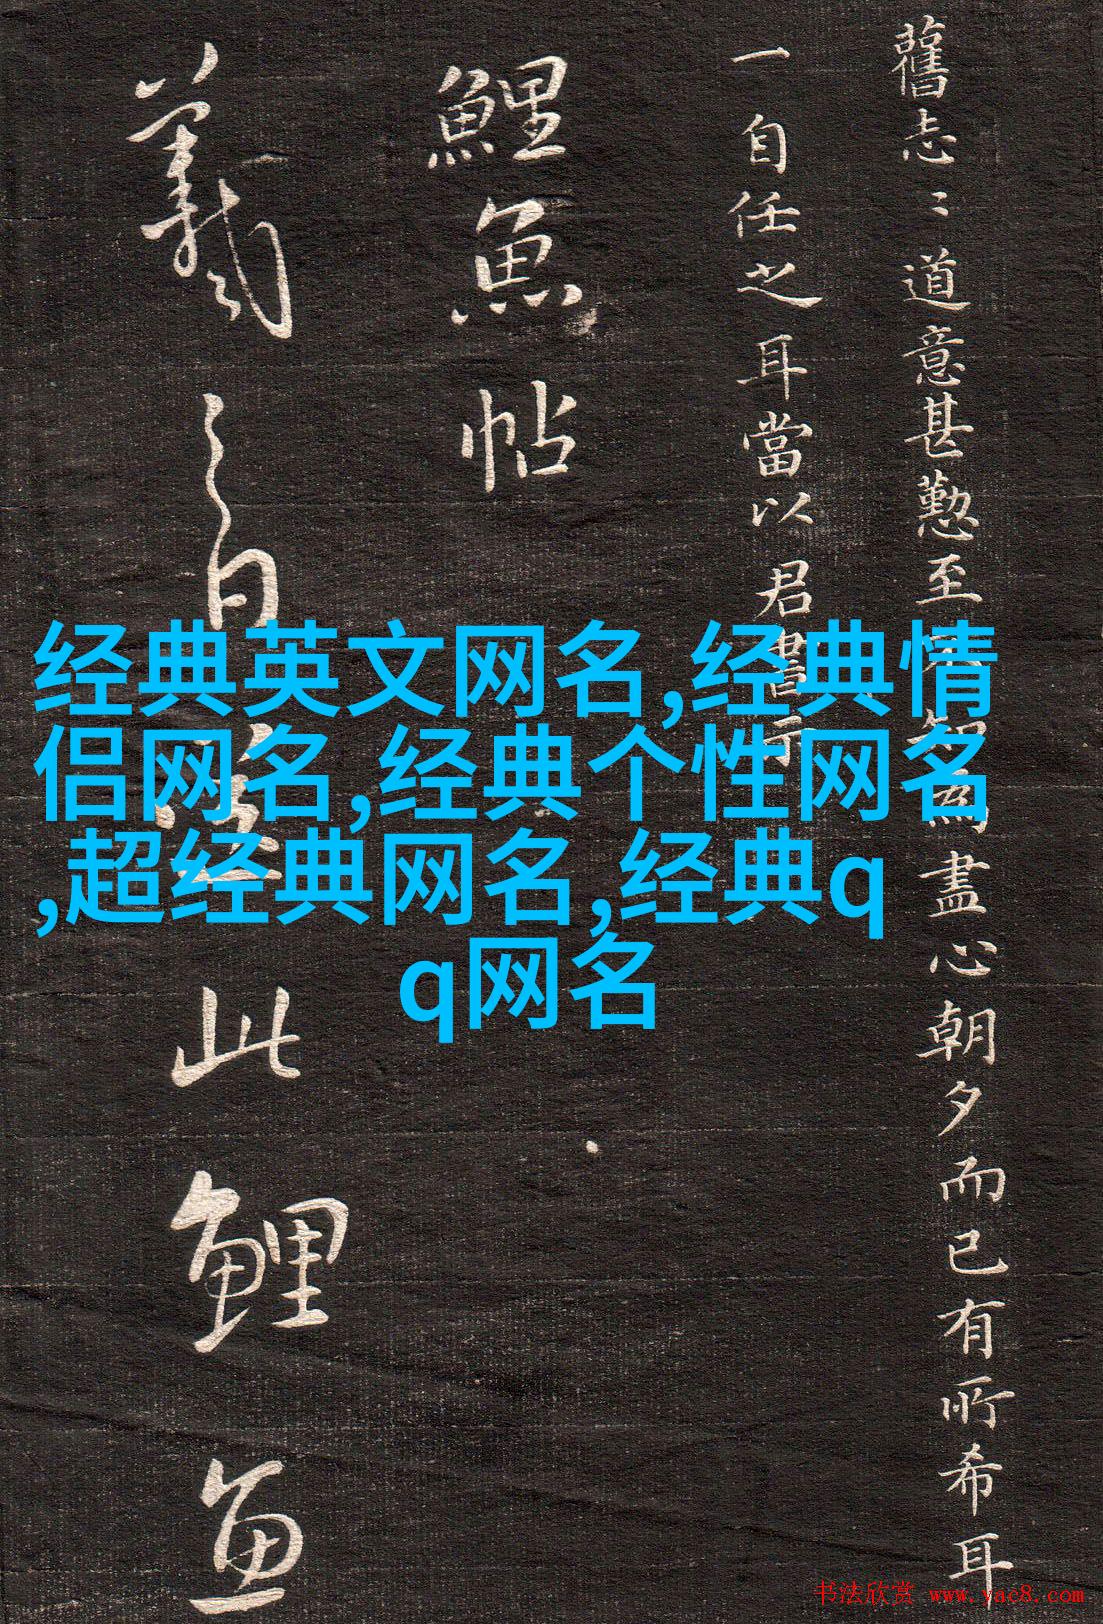 舊志〻道意甚懃至
為盡心朝夕而已有所希耳
一自任之耳當以君書示
鯉魚帖
羲之白
此鯉魚
经典英文网名,经典情
侣网名,经典个性网名
,超经典网名,经典q
q网名
书法欣赏 www.yac8.com